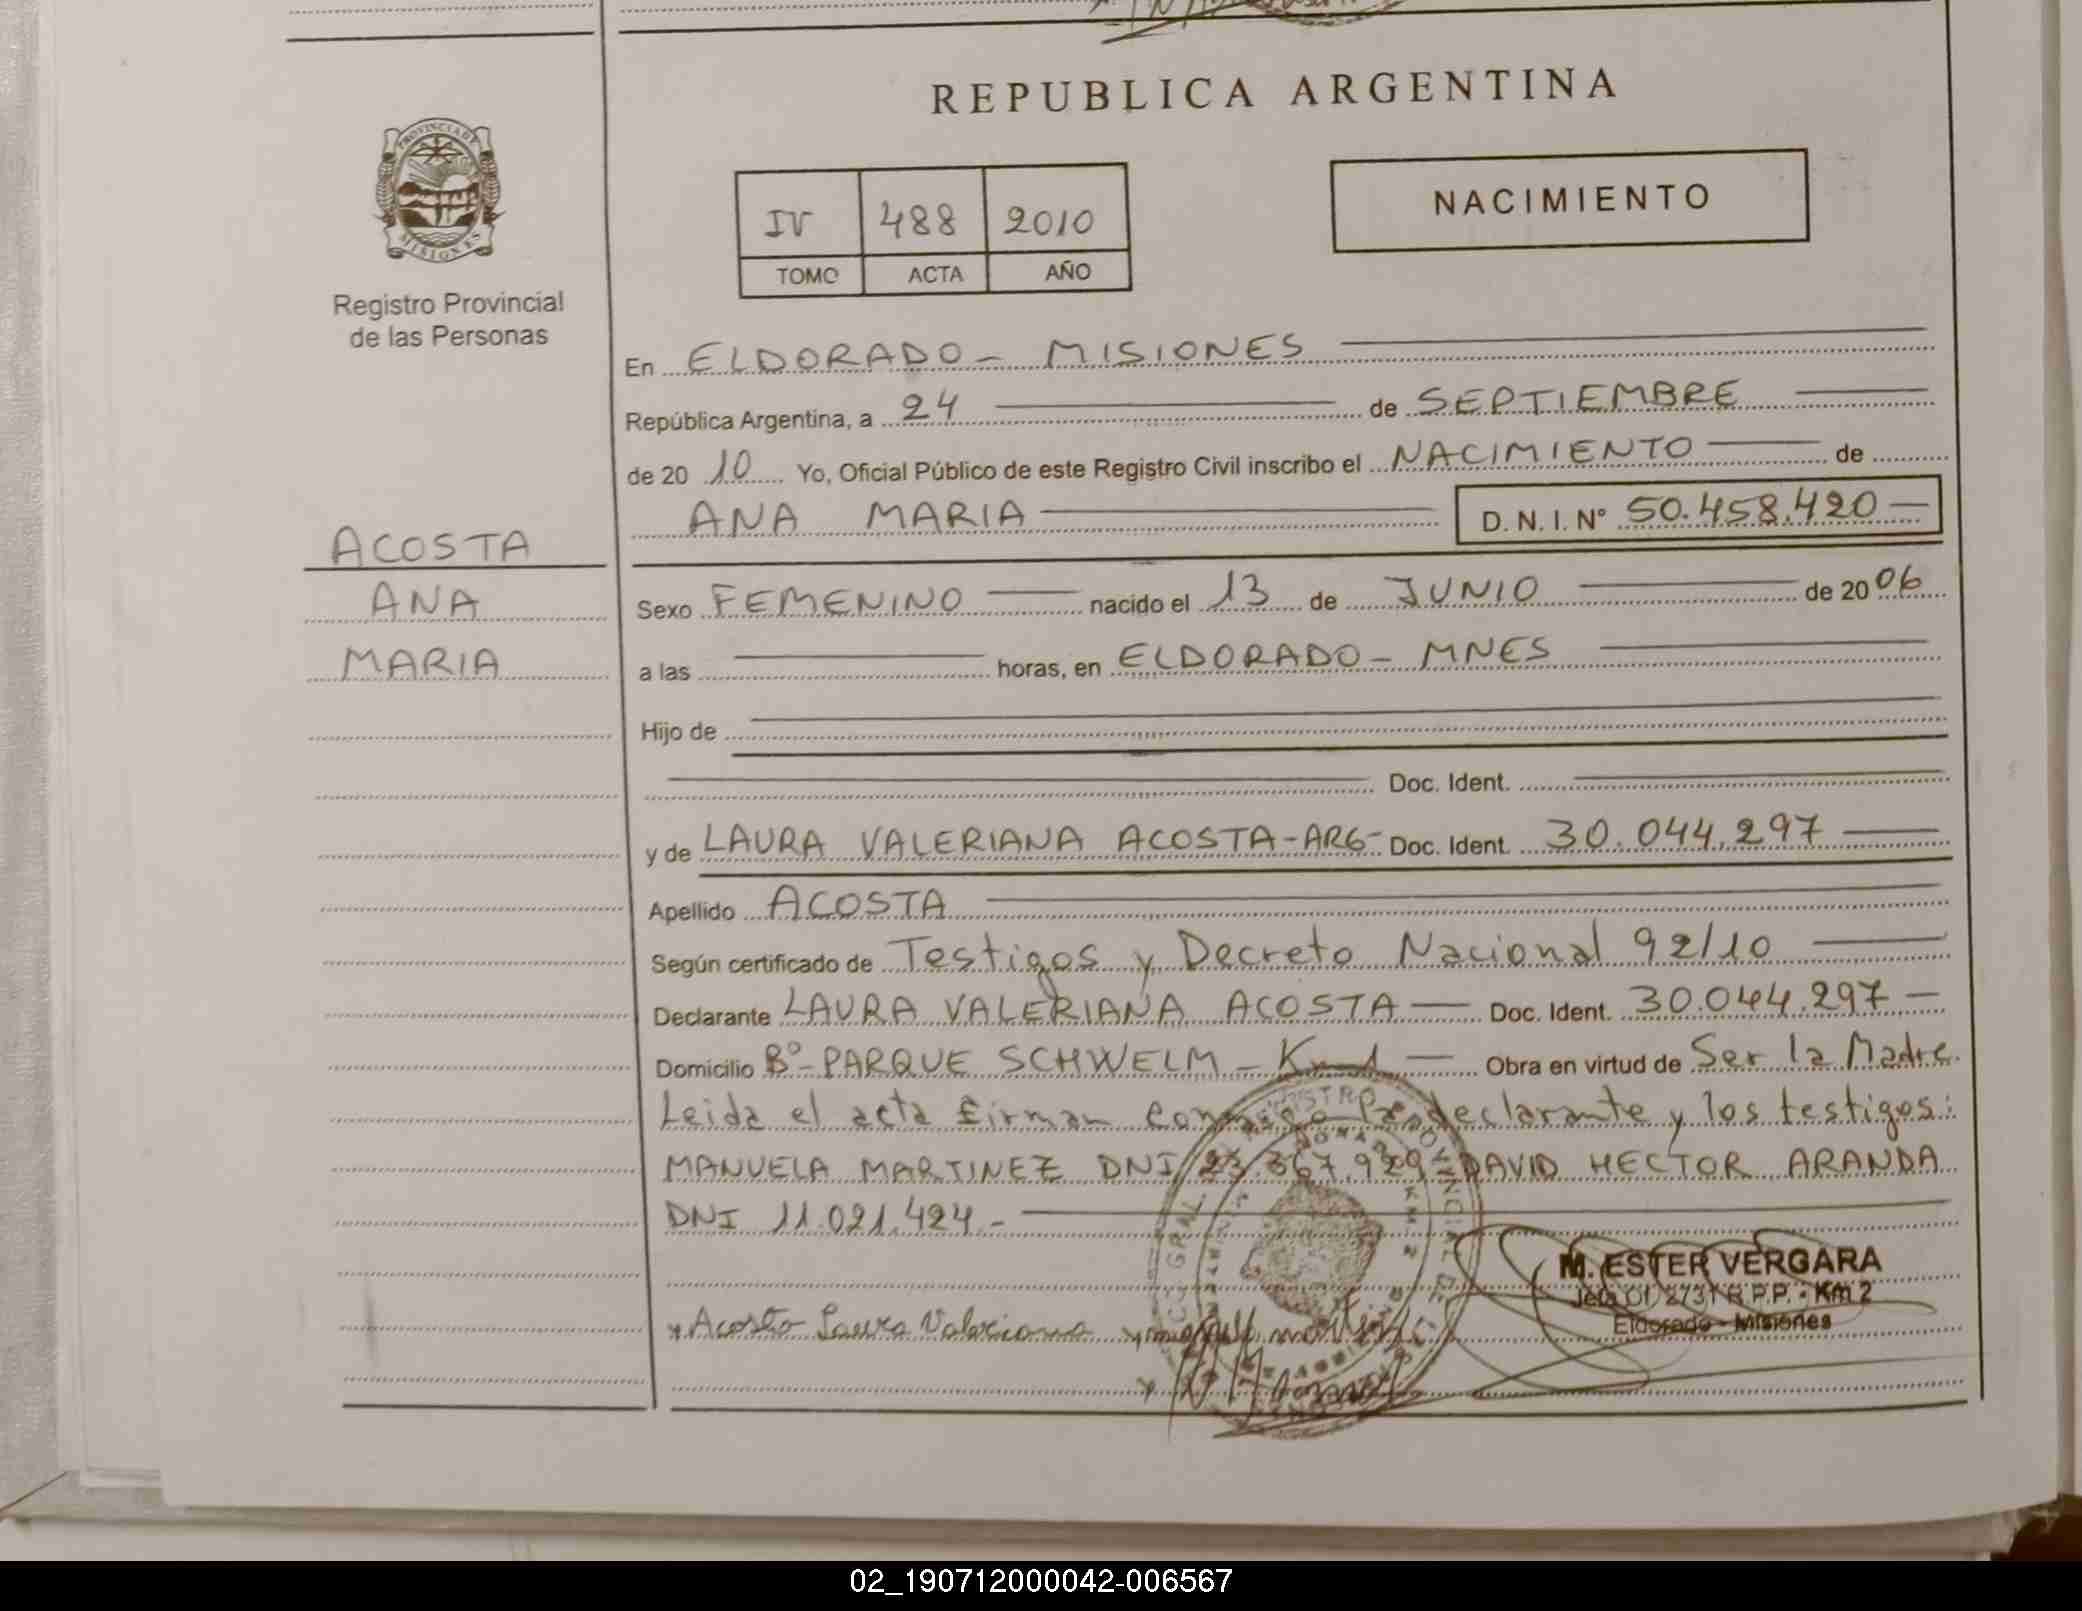 REPUBLICA ARGENTINA
PROVINCIA DE
MISIONES
Registro Provincial
de las Personas
IV 488 2010
TOMO ACTA AÑO
NACIMIENTO
En ELDORADO - MISIONES
República Argentina, a 24 de SEPTIEMBRE
de 20 10 Yo, Oficial Público de este Registro Civil inscribo el NACIMIENTO de
ANA MARIA D.N.I. Nº 50.458.420
ACOSTA
ANA
MARIA
Sexo FEMENINO nacido el 13 de JUNIO de 20 06
a las horas, en ELDORADO - MNES
Hijo de
Doc. Ident.
y de LAURA VALERIANA ACOSTA-ARG- Doc. Ident. 30.044.297
Apellido ACOSTA
Según certificado de Testigos y Decreto Nacional 92/10
Declarante LAURA VALERIANA ACOSTA Doc. Ident. 30.044.297
Domicilio Bº-PARQUE SCHWELM - Km 1 Obra en virtud de Ser la Madre.
Leida el acta firman conmigo la declarante y los testigos:
MANUELA MARTINEZ DNI 23.367.929 DAVID HECTOR ARANDA
DNI 11.021.424.-
M. ESTER VERGARA
Jefa Of. 2731 R.P.P. - Km 2
Eldorado - Misiones
x Acosta Laura Valeriana
02_190712000042-006567